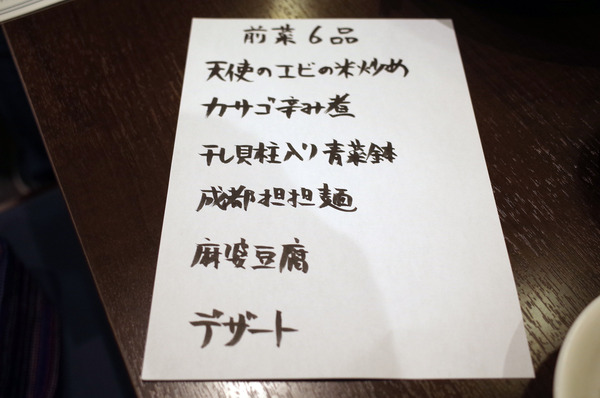 前菜6品
天使のエビの米炒め
カサゴ辛み煮
干し貝柱入り青菜鉢
成都担担麺
麻婆豆腐
デザート